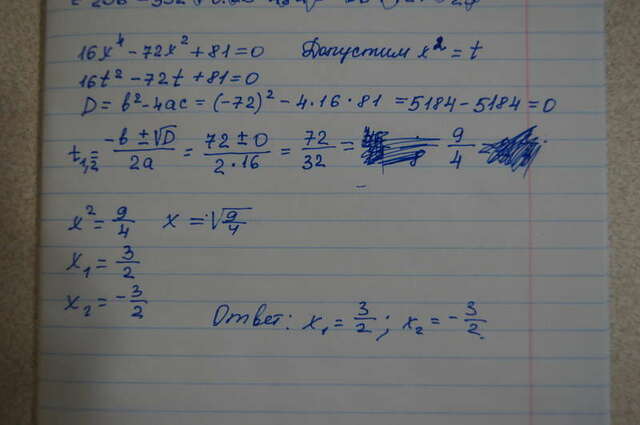 16x⁴ - 72x² + 81 = 0 Допустим x² = t
16t² - 72t + 81 = 0
D = b² - 4ac = (-72)² - 4·16·81 = 5184 - 5184 = 0
t₁,₂ = (-b ± √D)/(2a) = (72 ± 0)/(2·16) = 72/32 = 9/4
x² = 9/4 x = √(9/4)
x₁ = 3/2
x₂ = -3/2
Ответ: x₁ = 3/2; x₂ = -3/2.